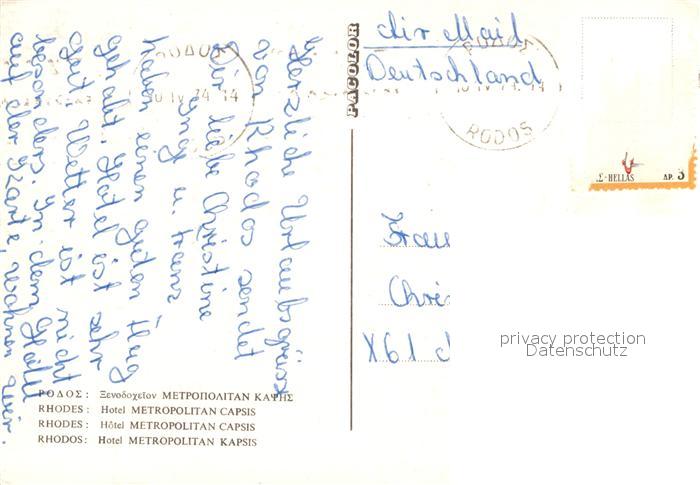 Herzliche Urlaubsgrüsse
von Rhodos sendet
Dir liebe Christine
Inge u. Franz
haben einen guten Flug
gehabt. Hotel ist sehr
gut Wetter ist nicht
besonders. In dem Hotel
auf der Karte, wohnen wir.
PACOLOR
Air Mail
Deutschland
RODOS
10 IV 74.14
RODOS
RODOS
10 IV 74.14
HELLAS ΔΡ. 3
Frau
Chri
X61
privacy protection
Datenschutz
ΡΟΔΟΣ: Ξενοδοχεῖον ΜΕΤΡΟΠΟΛΙΤΑΝ ΚΑΨΗΣ
RHODES: Hotel METROPOLITAN CAPSIS
RHODES: Hôtel METROPOLITAN CAPSIS
RHODOS: Hotel METROPOLITAN KAPSIS